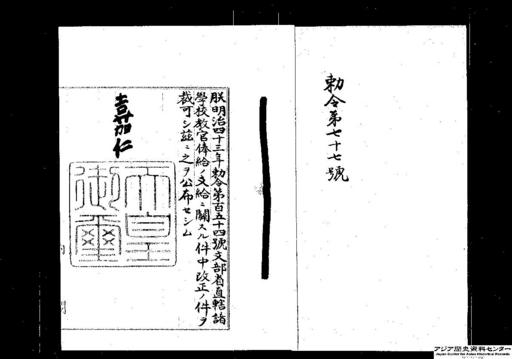 勅令第七十七號
朕明治四十三年勅令第百五十四號文部省直轄諸
學校教官俸給ノ支給ニ關スル件中改正ノ件ヲ
裁可シ茲ニ之ヲ公布セシム
嘉仁
天皇
御璽
アジア歴史資料センター
Japan Center for Asian Historical Records